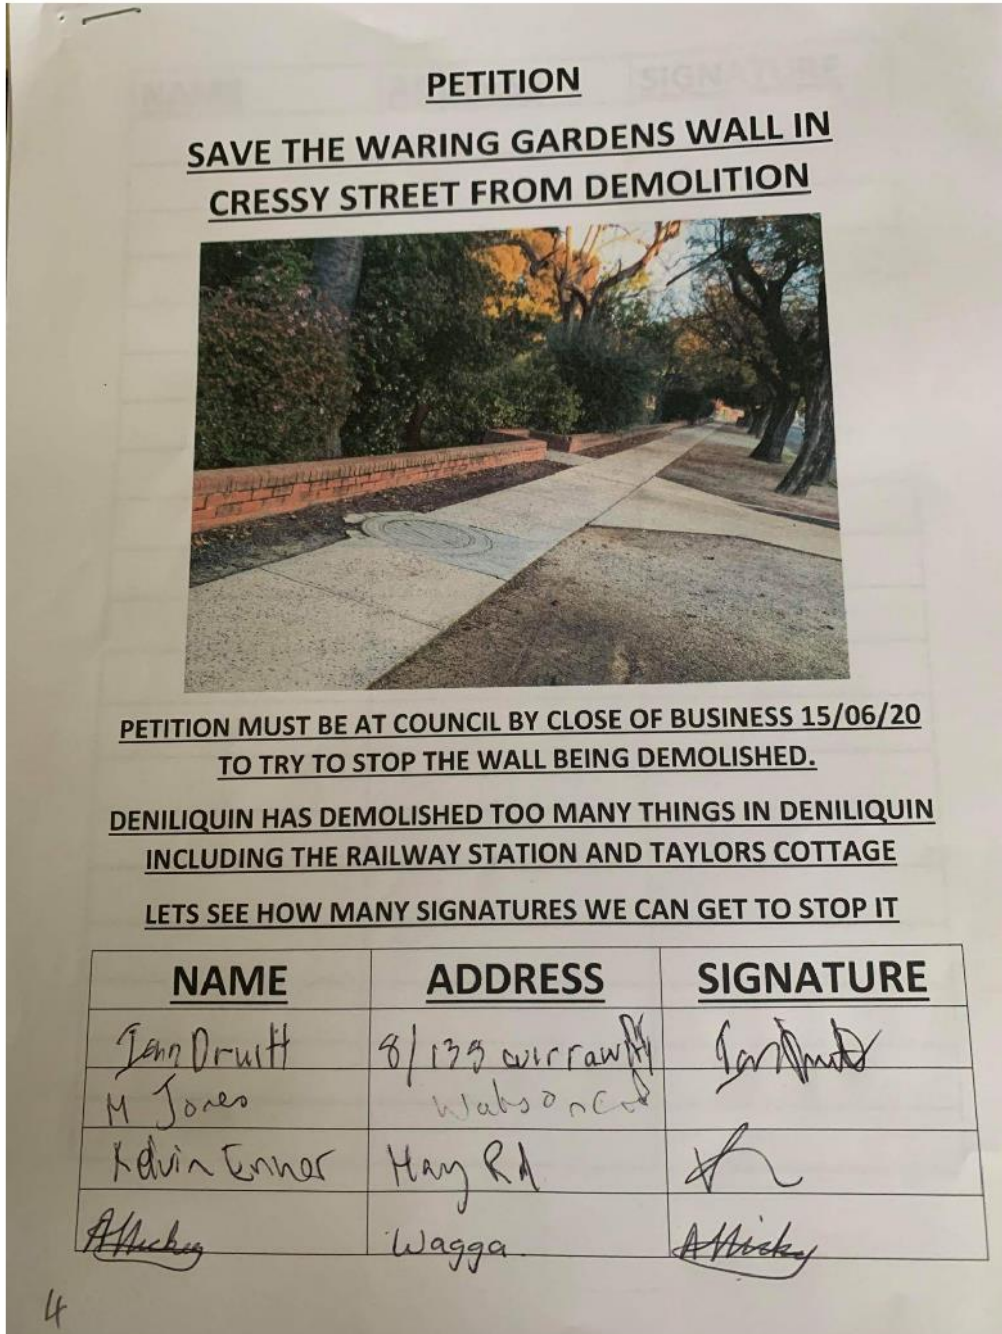 PETITION
SAVE THE WARING GARDENS WALL IN
CRESSY STREET FROM DEMOLITION
PETITION MUST BE AT COUNCIL BY CLOSE OF BUSINESS 15/06/20
TO TRY TO STOP THE WALL BEING DEMOLISHED.
DENILIQUIN HAS DEMOLISHED TOO MANY THINGS IN DENILIQUIN
INCLUDING THE RAILWAY STATION AND TAYLORS COTTAGE
LETS SEE HOW MANY SIGNATURES WE CAN GET TO STOP IT
NAME ADDRESS SIGNATURE
Druitt 8/
M Jones Watson
Kelvin Hay Rd
Wagga
4